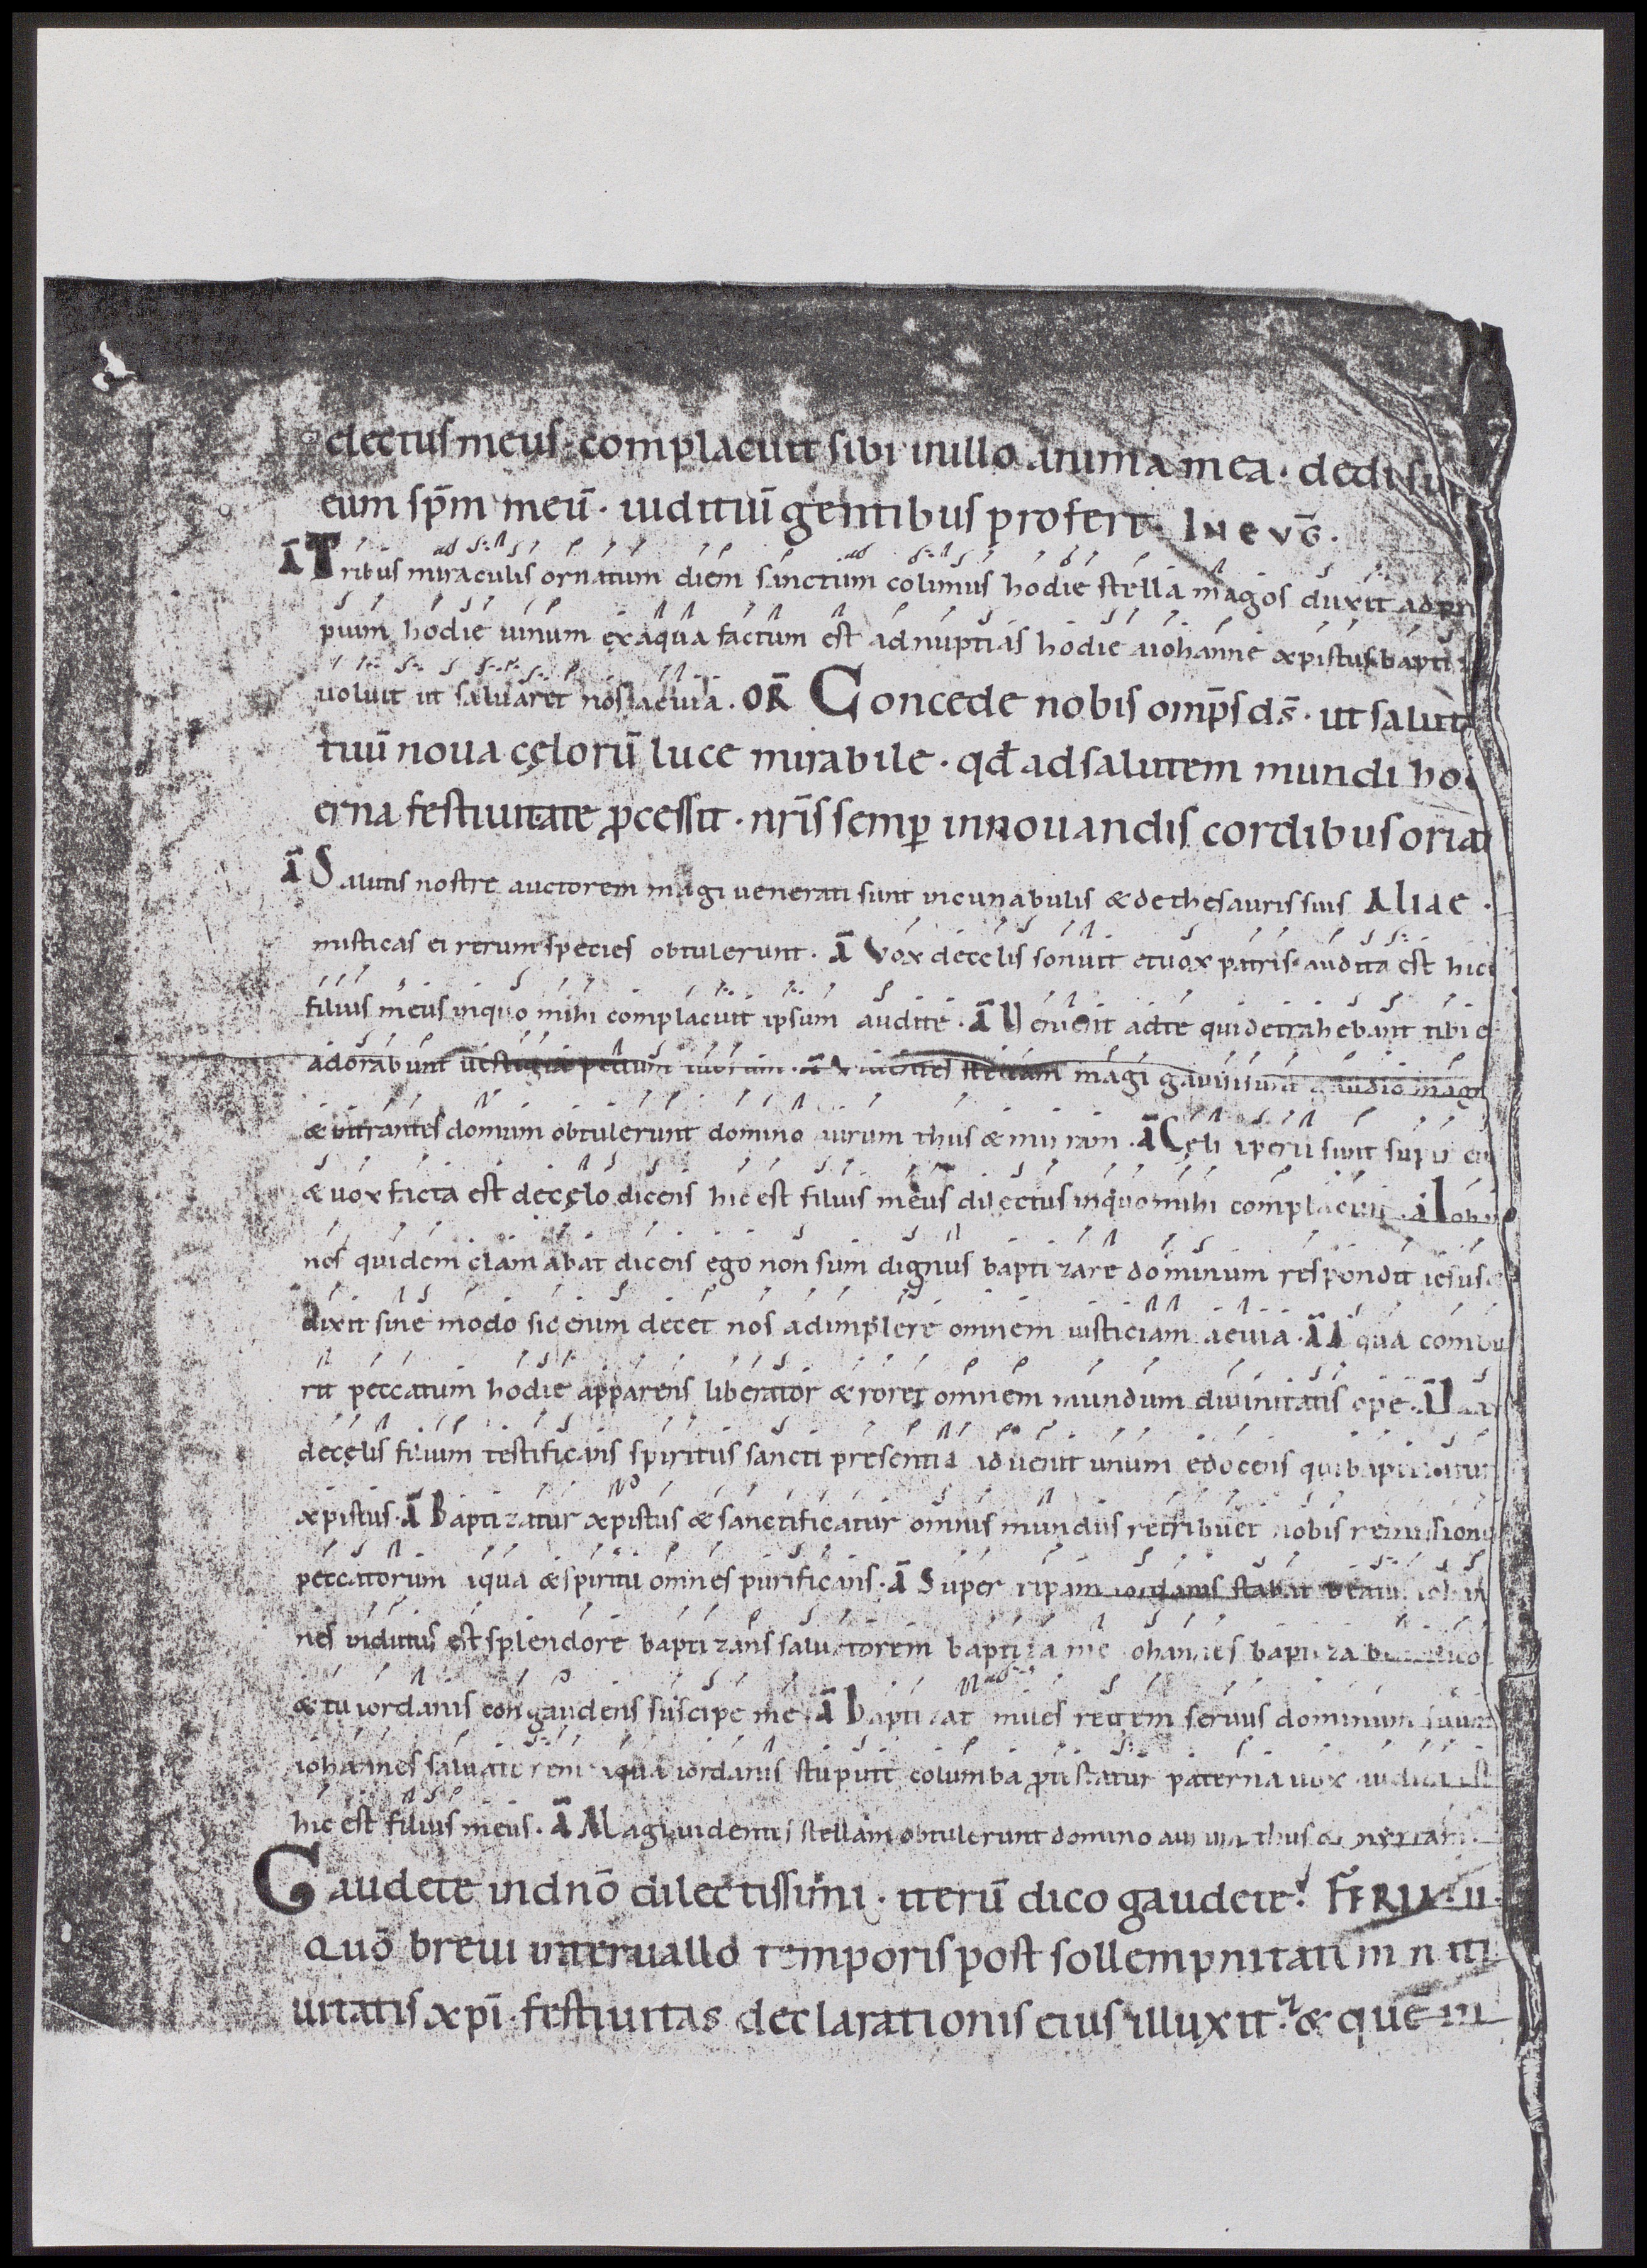 electus meus · complacuit sibi in illo anima mea · dedi sup
eum sp̄m meū · iuditiū gentibus profert · In evḡ ·
Ā Tribus miraculis ornatum diem sanctum colimus hodie stella magos duxit ad pre
pium hodie uinum ex aqua factum est ad nuptias hodie a iohanne xpistus bapti
uoluit ut saluaret nos aeuia · OR̄ Concede nobis omp̄s ds̄ · ut salut
tuū noua cęlorū luce mirabile · qđ ad salutem mundi ho
erna festiuitate ꝓcessit · nr̄is semꝑ innouandis cordibus oria
Ā Salutis nostre auctorem magi uenerati sunt in cunabulis & de thesauris suis Aliae ·
misticas ei rerum species obtulerunt · Ā Vox de celis sonuit et uox patris audita est hic
filius meus in quo mihi complacuit ipsum audite · Ā Venient ad te qui detrahebant tibi &
adorabunt uestigia pedum tuorum · Ā Videntes stellam magi gauisi sunt gaudio mag
& intrantes domum obtulerunt domino aurum thus & mirram · Ā Cęli aperti sunt super eu
& uox facta est de cęlo dicens hic est filius meus dilectus in quo mihi complacuit · Ā Ioha
nes quidem clamabat dicens ego non sum dignus baptizare dominum respondit iesus &
dixit sine modo sic enim decet nos adimplere omnem iusticiam aeuia · Ā Aqua combu
rit peccatum hodie apparens liberator & roret omnem mundum diuinitatis ope · Ā
de cęlis filium testificans spiritus sancti presentia aduenit unum edocens qui baptizatur
xpistus · Ā Baptizatur xpistus & sanctificatur omnis mundus & tribuet nobis remission
peccatorum aqua & spiritu omnes purificans · Ā Super ripam iordanis stabat beatus iohan
nes indutus est splendore baptizans saluatorem baptiza me iohannes baptiza
& tu iordanis congaudens suscipe me · Ā Baptizat miles regem seruus dominum suum
iohannes saluatorem aqua iordanis stupuit columba ꝓtestatur paterna uox audita est
hic est filius meus · Ā Magi uidentes stellam obtulerunt domino aurum thus & mirram ·
Gaudete in dnō dilectissimi · iterū dico gaudete · FERIA II ·
Quō breui interuallo temporis post sollempnitatem nati
uitatis xp̄i · festiuitas declarationis eius illuxit · & quē in